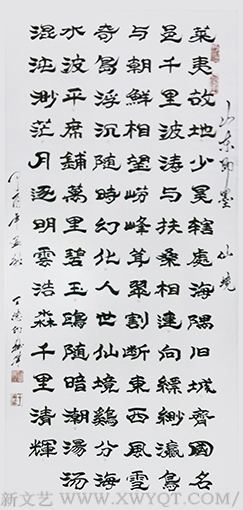 山東即墨 仙境
萊夷故地少昊轄處海隅旧城齊國名
邑千里波濤与扶桑相連向縹緲瀛島
与朝鮮相望嶗峰聳翠割断東西風雪
奇島浮沉随時幻化人世仙境鷄分海
水波平席鋪萬里碧玉鷗随暗潮湯湯
混沌渺茫月逐明雲浩淼千里清輝
丁酉年
新文艺(WWW.XWYQT.COM/)